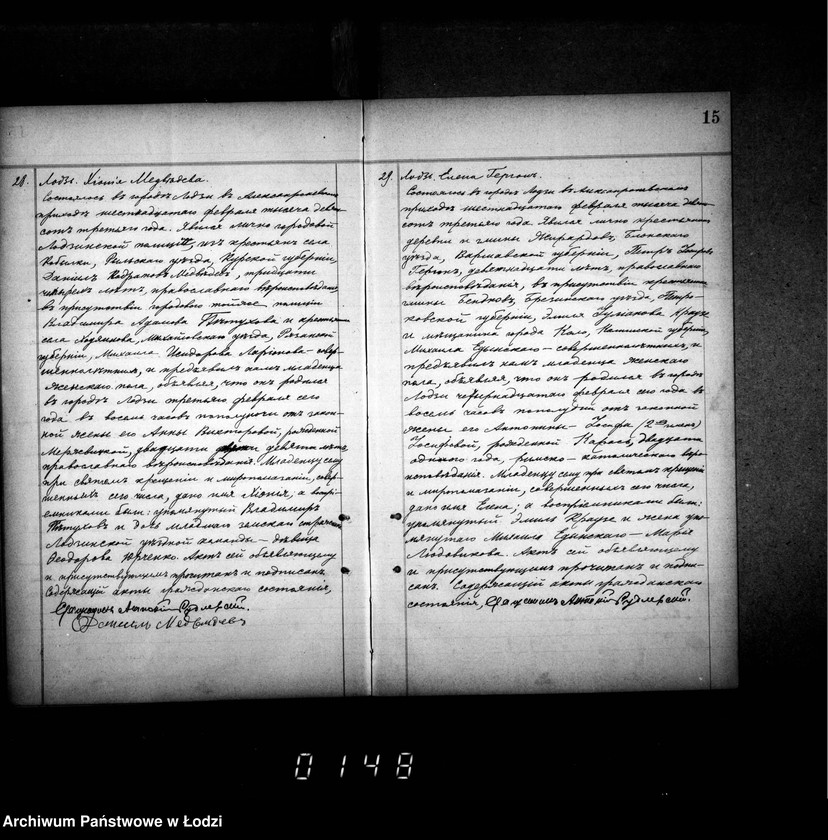 15
28.
Лодзь. Хіонія Медвѣдева.
Состоялось въ городѣ Лодзи въ Александроневскомъ
приходѣ шестнадцатаго февраля тысяча девять
сотъ третьяго года. Явился лично городовой
Лодзинской полиціи, изъ крестьянъ села
Рыльскаго уѣзда, Курской губерніи,
Даніилъ Медвѣдевъ, тридцати
четырехъ лѣтъ, православнаго вѣроисповѣданія
въ присутствіи городового той же полиціи
Владиміра и крестьянина
села Михайловскаго уѣзда, Рязанской
губерніи, Михаила Ларіонова — совер-
шеннолѣтнихъ, и предъявилъ намъ младенца
женскаго пола, объявляя, что онъ родился
въ городѣ Лодзи третьяго февраля сего
года въ восемь часовъ пополуночи отъ закон-
ной жены его Анны Викторовой, рожденной
двадцати девяти лѣтъ
православнаго вѣроисповѣданія. Младенцу сему
при святомъ крещеніи и миропомазаніи, совер-
шенныхъ сего числа, дано имя Хіонія, а воспрі-
емниками были: упомянутый Владиміръ
и дочь младшаго земской стражи
Лодзинской уѣздной команды — дѣвица
Ѳеодорова Юрченко. Актъ сей объявляющему
и присутствующимъ прочитанъ и подписанъ.
Содержащій акты гражданскаго состоянія,
Священникъ Антоній Рудлевскій.
Даніилъ Медвѣдевъ
29
Лодзь. Елена Гергонъ.
Состоялось въ городѣ Лодзи въ Александроневскомъ
приходѣ шестнадцатаго февраля тысяча девять
сотъ третьяго года. Явился лично крестьянинъ
деревни и гмины Жирардовъ, Блонскаго
уѣзда, Варшавской губерніи, Петръ Петровъ
Гергонъ, девятнадцати лѣтъ, православнаго
вѣроисповѣданія, въ присутствіи крестьянина
гмины Бендковъ, Брезинскаго уѣзда, Петро-
ковской губерніи, Эмиля Юліанова Краузе
и мѣщанина города Коло, Калишской губерніи,
Михаила Едынскаго — совершеннолѣтнихъ, и
предъявилъ намъ младенца женскаго
пола, объявляя, что онъ родился въ городѣ
Лодзи четырнадцатаго февраля сего года въ
восемь часовъ пополудни отъ законной
жены его Антонины - Іосифы (2 имени)
Іосифовой, рожденной Кароль, двадцати
одного года, римско-католическаго вѣро-
исповѣданія. Младенцу сему при святомъ крещеніи
и миропомазаніи, совершенныхъ сего числа,
дано имя Елена; а воспріемниками были:
упомянутый Эмиль Краузе и жена упо-
мянутаго Михаила Едынскаго — Марія
Людовикова. Актъ сей объявляющему
и присутствующимъ прочитанъ и подпи-
санъ. Содержащій акты гражданскаго
состоянія, Священникъ Антоній Рудлевскій.
0148
Archiwum Państwowe w Łodzi